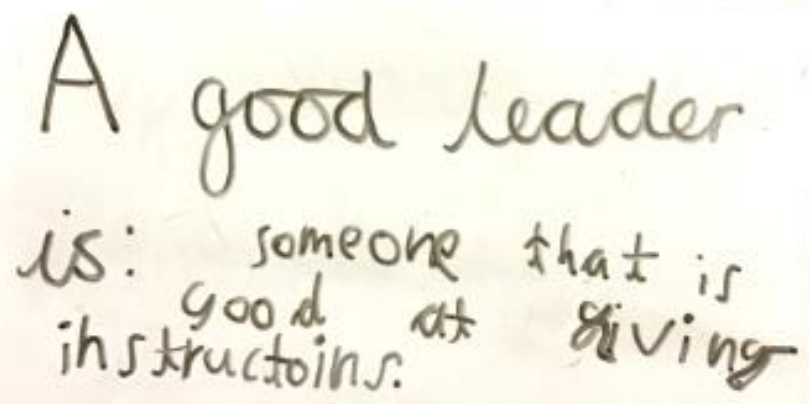 A good leader
is: someone that is
good at giving
instructoins.